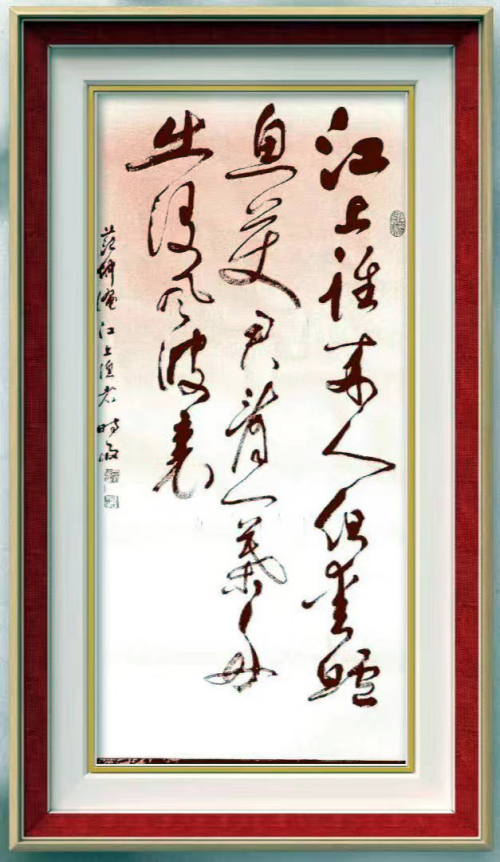 江上往来人但爱鲈
鱼美君看一葉舟
出没风波裏
范仲淹江上渔者